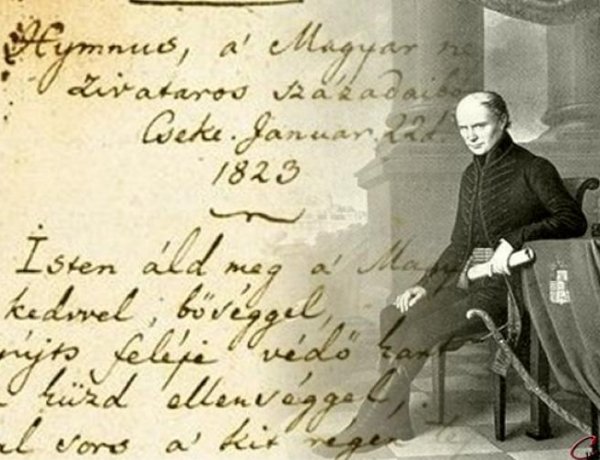 Hymnus, a' Magyar ne
Zivataros századaibó
Cseke. Januar. 22d.
1823
Isten áld meg a' Magy
kedvvel, bőséggel,
nyújts feléje védő kart
küzd ellenséggel,
al sors a' kit régen